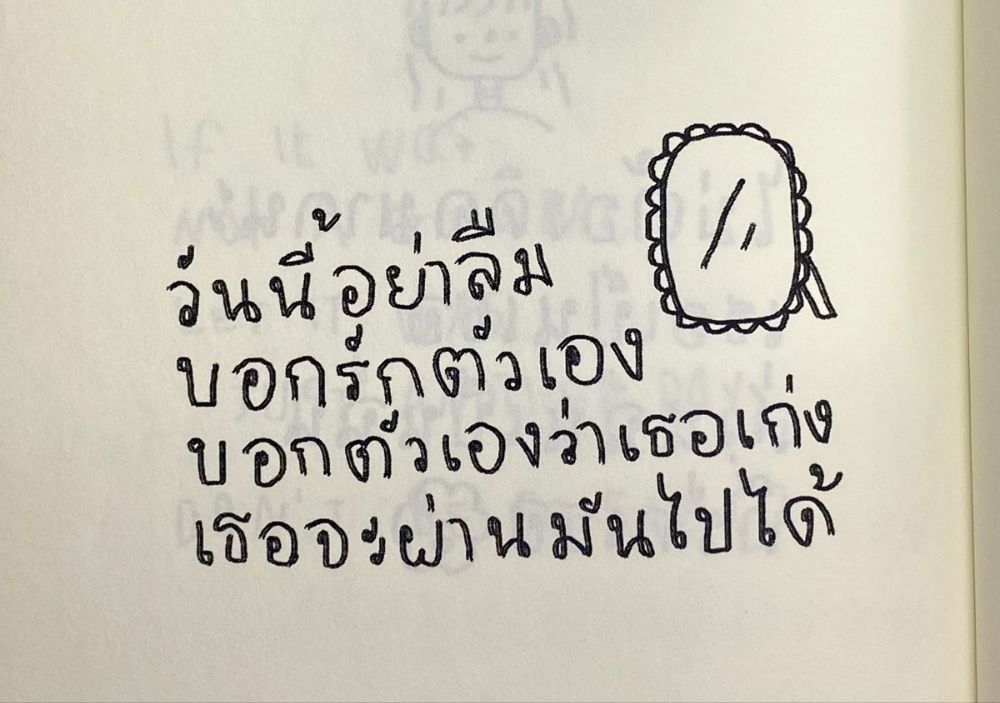 วันนี้อย่าลืม
บอกรักตัวเอง
บอกตัวเองว่าเธอเก่ง
เธอจะผ่านมันไปได้